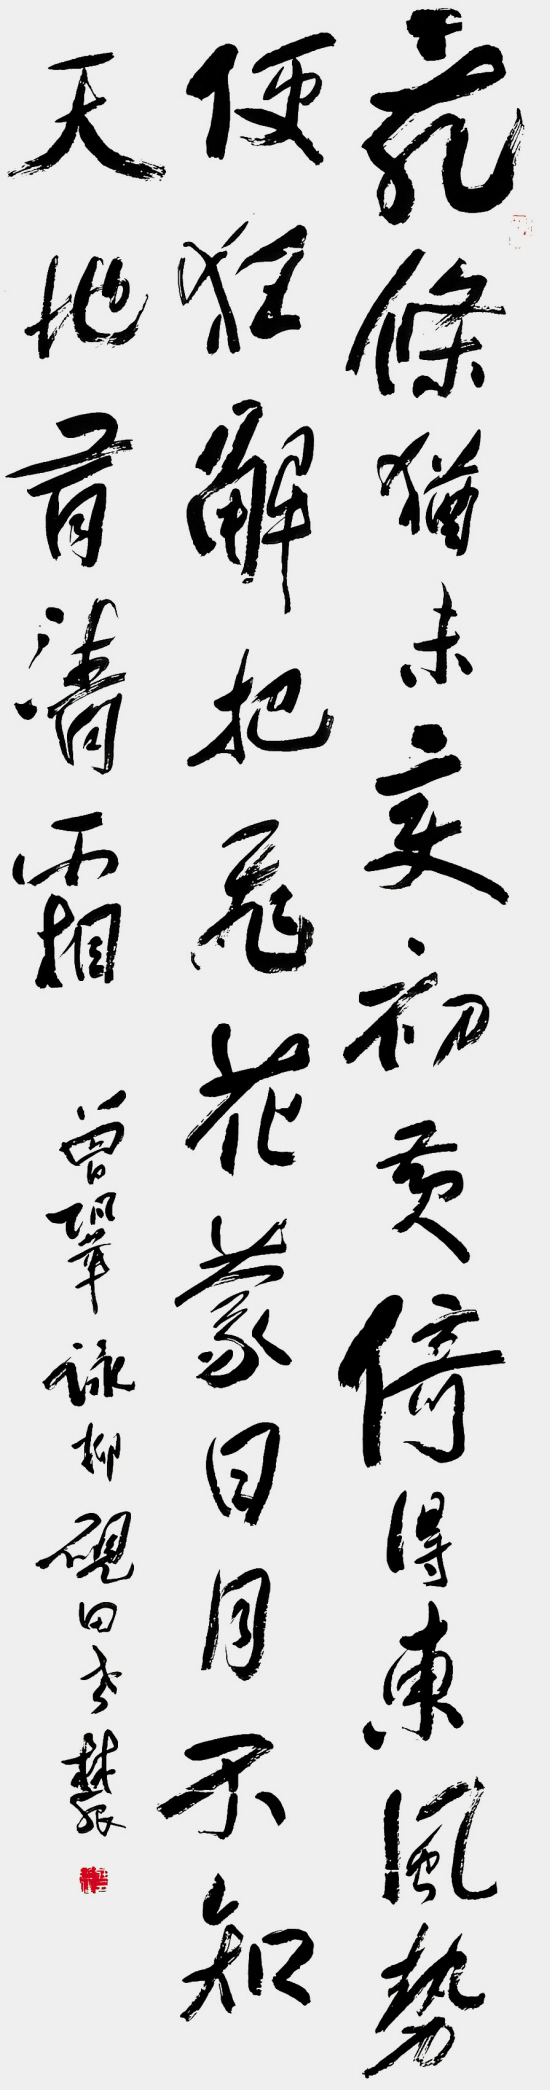 亂條猶未變初黄倚得東風勢
便狂解把飛花蒙日月不知
天地有清霜 曾鞏詠柳 硯田